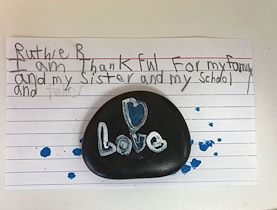 Ruthie B
I am thankful for my family
and my sister and my school
and
Love